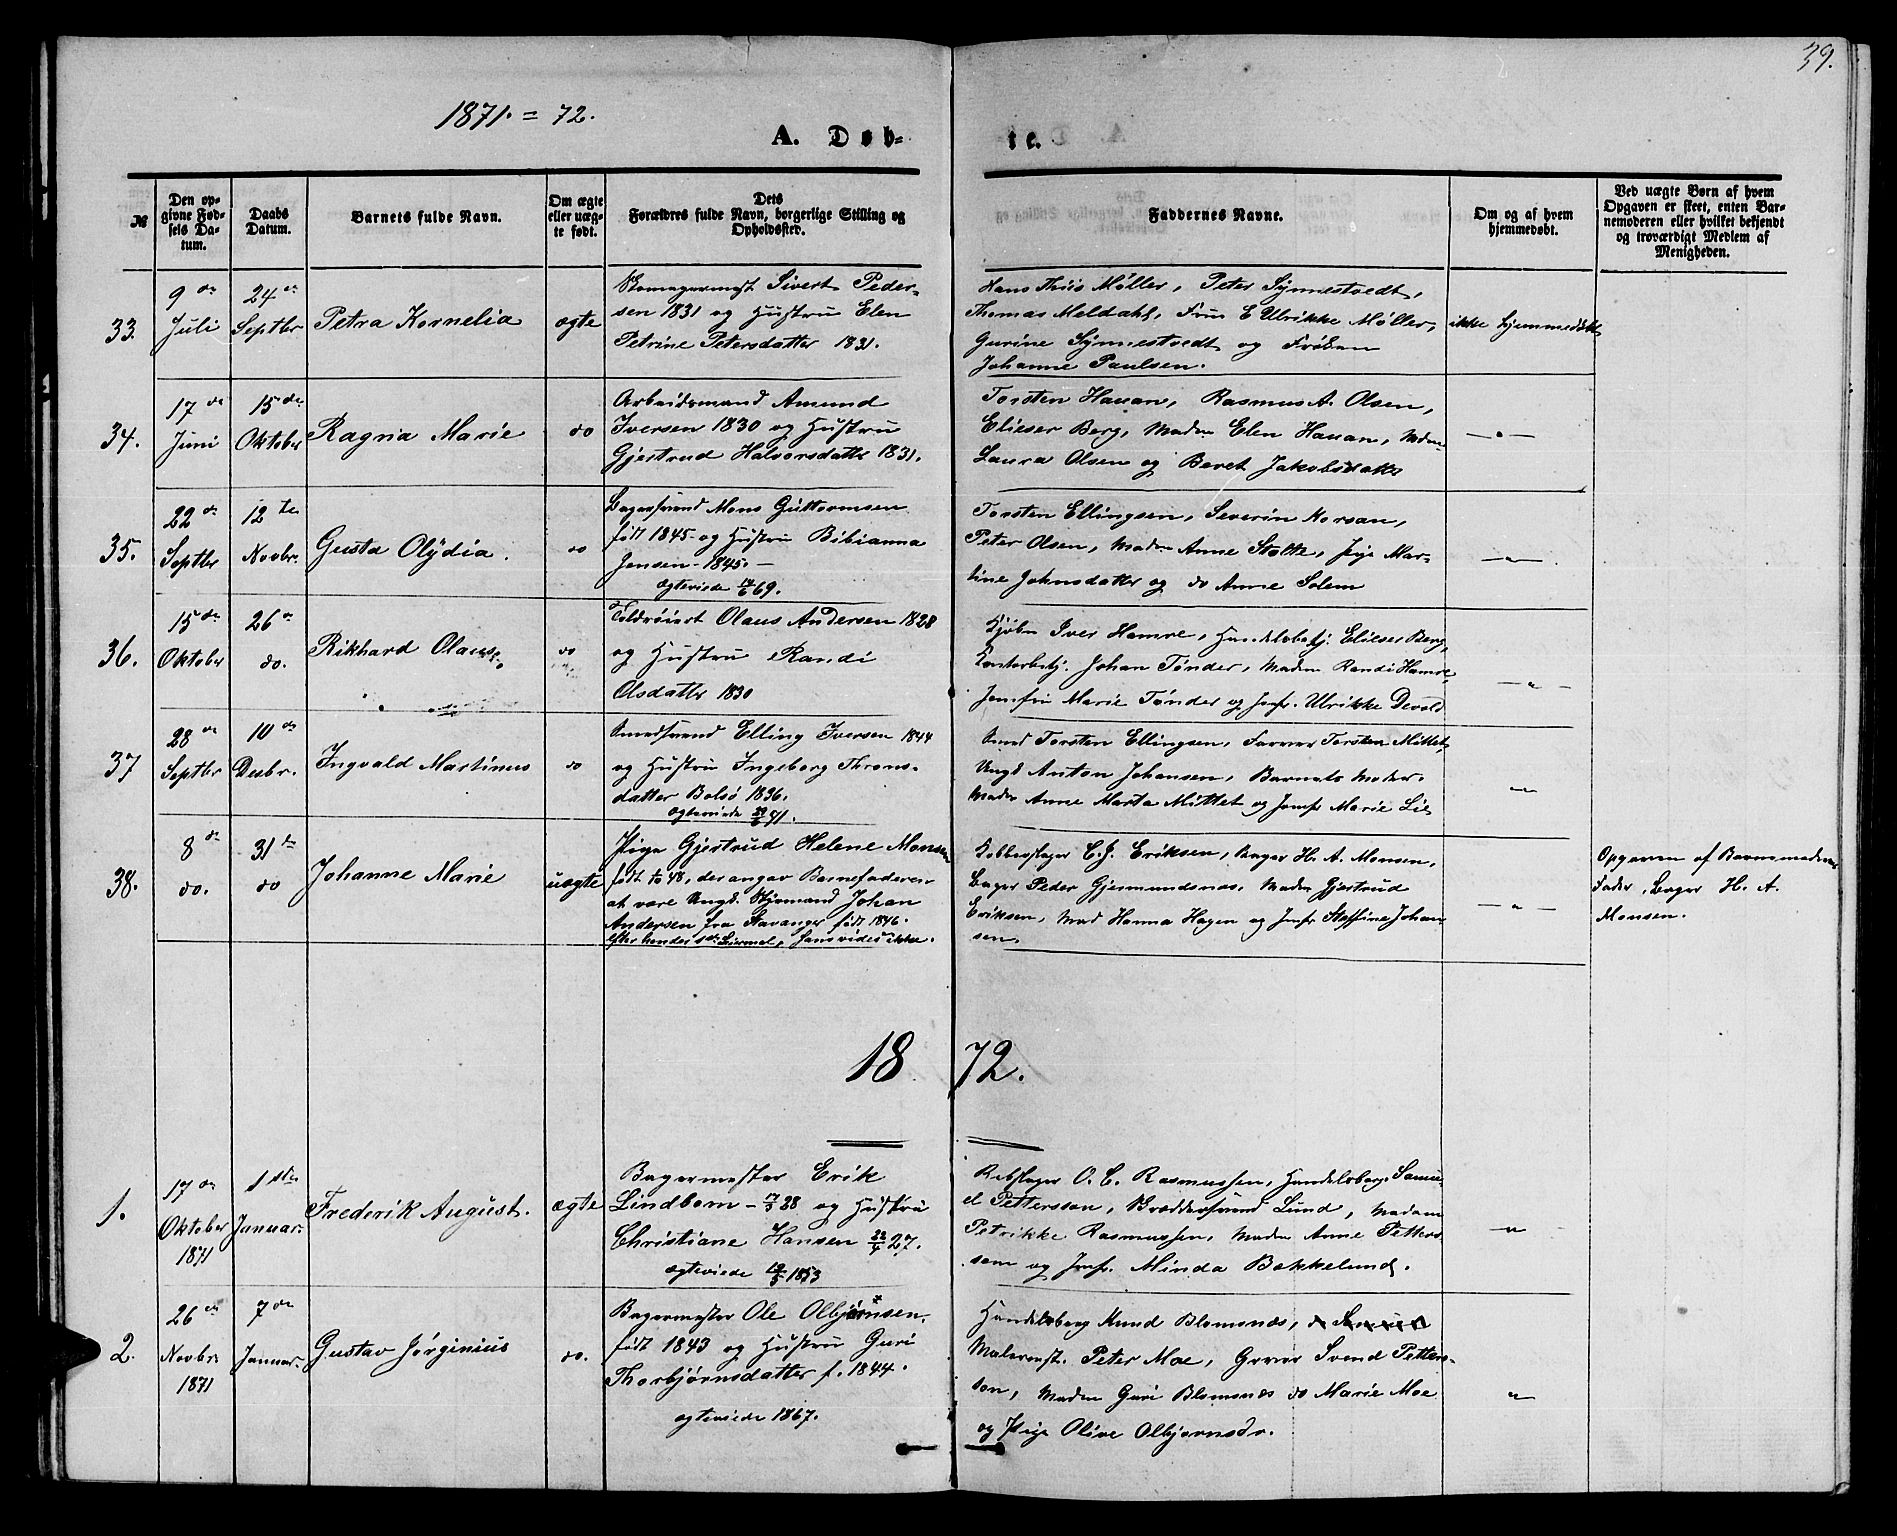 39.
1871. = 72.
A. Døb-
te.
№
Den op-
givne Fød-
sels Da-
tum.
Daabs
Datum.
Barnets fulde Navn.
Om ægte
eller uæg-
te født.
Dets
Forældres fulde Navn, borgerlige Stilling og
Opholdssted.
Faddernes Navne.
Om og af hvem
hjemmedøbt.
Ved uægte Børn af hvem
Opgaven er skeet, enten Bar-
nemoderen eller hvilket bekjendt
og troværdigt Medlem af
Menigheden.
33.
9 de
Juli
24 de
Septbr
Petra Kornelia
ægte
Sivert Peder-
sen 1831 og Hustru Elen
Petrine Petersdatter 1831.
Hans Thiis Møller, Peter Synnestvedt,
Thomas Meldahl, Fru E Ulrikke Møller,
Gurine Synnestvedt og Frøken
Johanne Paulsen.
ikke hjemmedøbt
34.
17 de
Juni
15 de
Oktober
Ragna Marie
do
Arbeidsmand Amund
Iversen 1830 og Hustru
Gjertrud Halvorsdatter 1831.
Torsten Hauan, Rasmus A. Olsen,
Elieser Berg, Madm Elen Hauan, Madm
Laura Olsen og Beret Jakobsdatter
— " —
35.
22 de
Septbr
12 te
Novbr.
Gusta Olydia.
do
Bagersvend Mons Guttormsen
født 1845 og Hustru Bibianna
Jensen - 1845. -
ægteviede 69.
Torsten Ellingsen, Severin Korsan,
Peter Olsen, Madm Anne Stolte, Pige Mar-
tine Johnsdatter og do Anne Solem
— " —
36.
15 de
Oktober
26 de
do.
Rikhard Olaus.
do
Toldrøiert Olaus Andersen 1828
og Hustru Randi
Olsdatter 1830
Kjøbm Iver Hamre, Handelsbetj. Elieser Berg,
Kontorbetj. Johan Tønder, Madm Randi Hamre
Jomfru Marie Tønder og Jmfr. Ulrikke Devold
— " —
37
28 de
Septbr
10 de
Decbr.
Ingvald Martinus
do
Smedsvend Elling Iversen 1844
og Hustru Ingeborg Throns-
datter Bolsø 1836.
ægteviede 71.
Smed Torsten Ellingsen, Farver Torsten Mittet
Ungk Anton Johansen, Barnets Moder,
Madm Anne Marta Mittet og Jomfr Marie Lie
— " —
38.
8 de
do.
31 te
do
Johanne Marie
uægte
Pige Gjertrud Helene Monsen
født 48, der angav Barnefaderen
at være Ungk. Styrmand Johan
Andersen fra Stavanger født 1846.
efter hendes Leiermaal, hans vides ikke.
Kobberslager C. J. Eriksen, Bager H. A. Monsen,
Bager Peder Gjermundsnæs, Madm Gjertrud
Eriksen, Mad Hanna Hagen og Jmfr Steffine Johan
sen.
— " —
Opgaven af Barnemoderens
Fader, Bager H. A.
Monsen.
18 72.
1.
17 de
Oktober
1871
1 ste
Januar.
Frederik August.
ægte
Bagermester Erik
Lindbom - 28 og Hustru
Christiane Hansen 27.
ægteviede 1853
Rebslager O. C. Rasmussen, Handelsborg. Samu-
el Pettersson, Lund, Madam
Petrikke Rasmussen, Madm Anne Petters
son og Jmfr. Minda Bakkelund.
"
2.
26 de
Novbr.
1871
7 de
Januar.
Gustav Jørginius
do.
Bagermester Ole Olbjørnsen.
født 1843 og Hustru Guri
Thorbjørnsdatter f. 1844.
ægteviede 1867.
Handelsborg Knud Blomsnæs,
Malermst. Peter Moe, Svend Petters-
son, Madm Guri Blomsnæs do Marie Moe
og Pige Olive Olbjørnsdr.
"